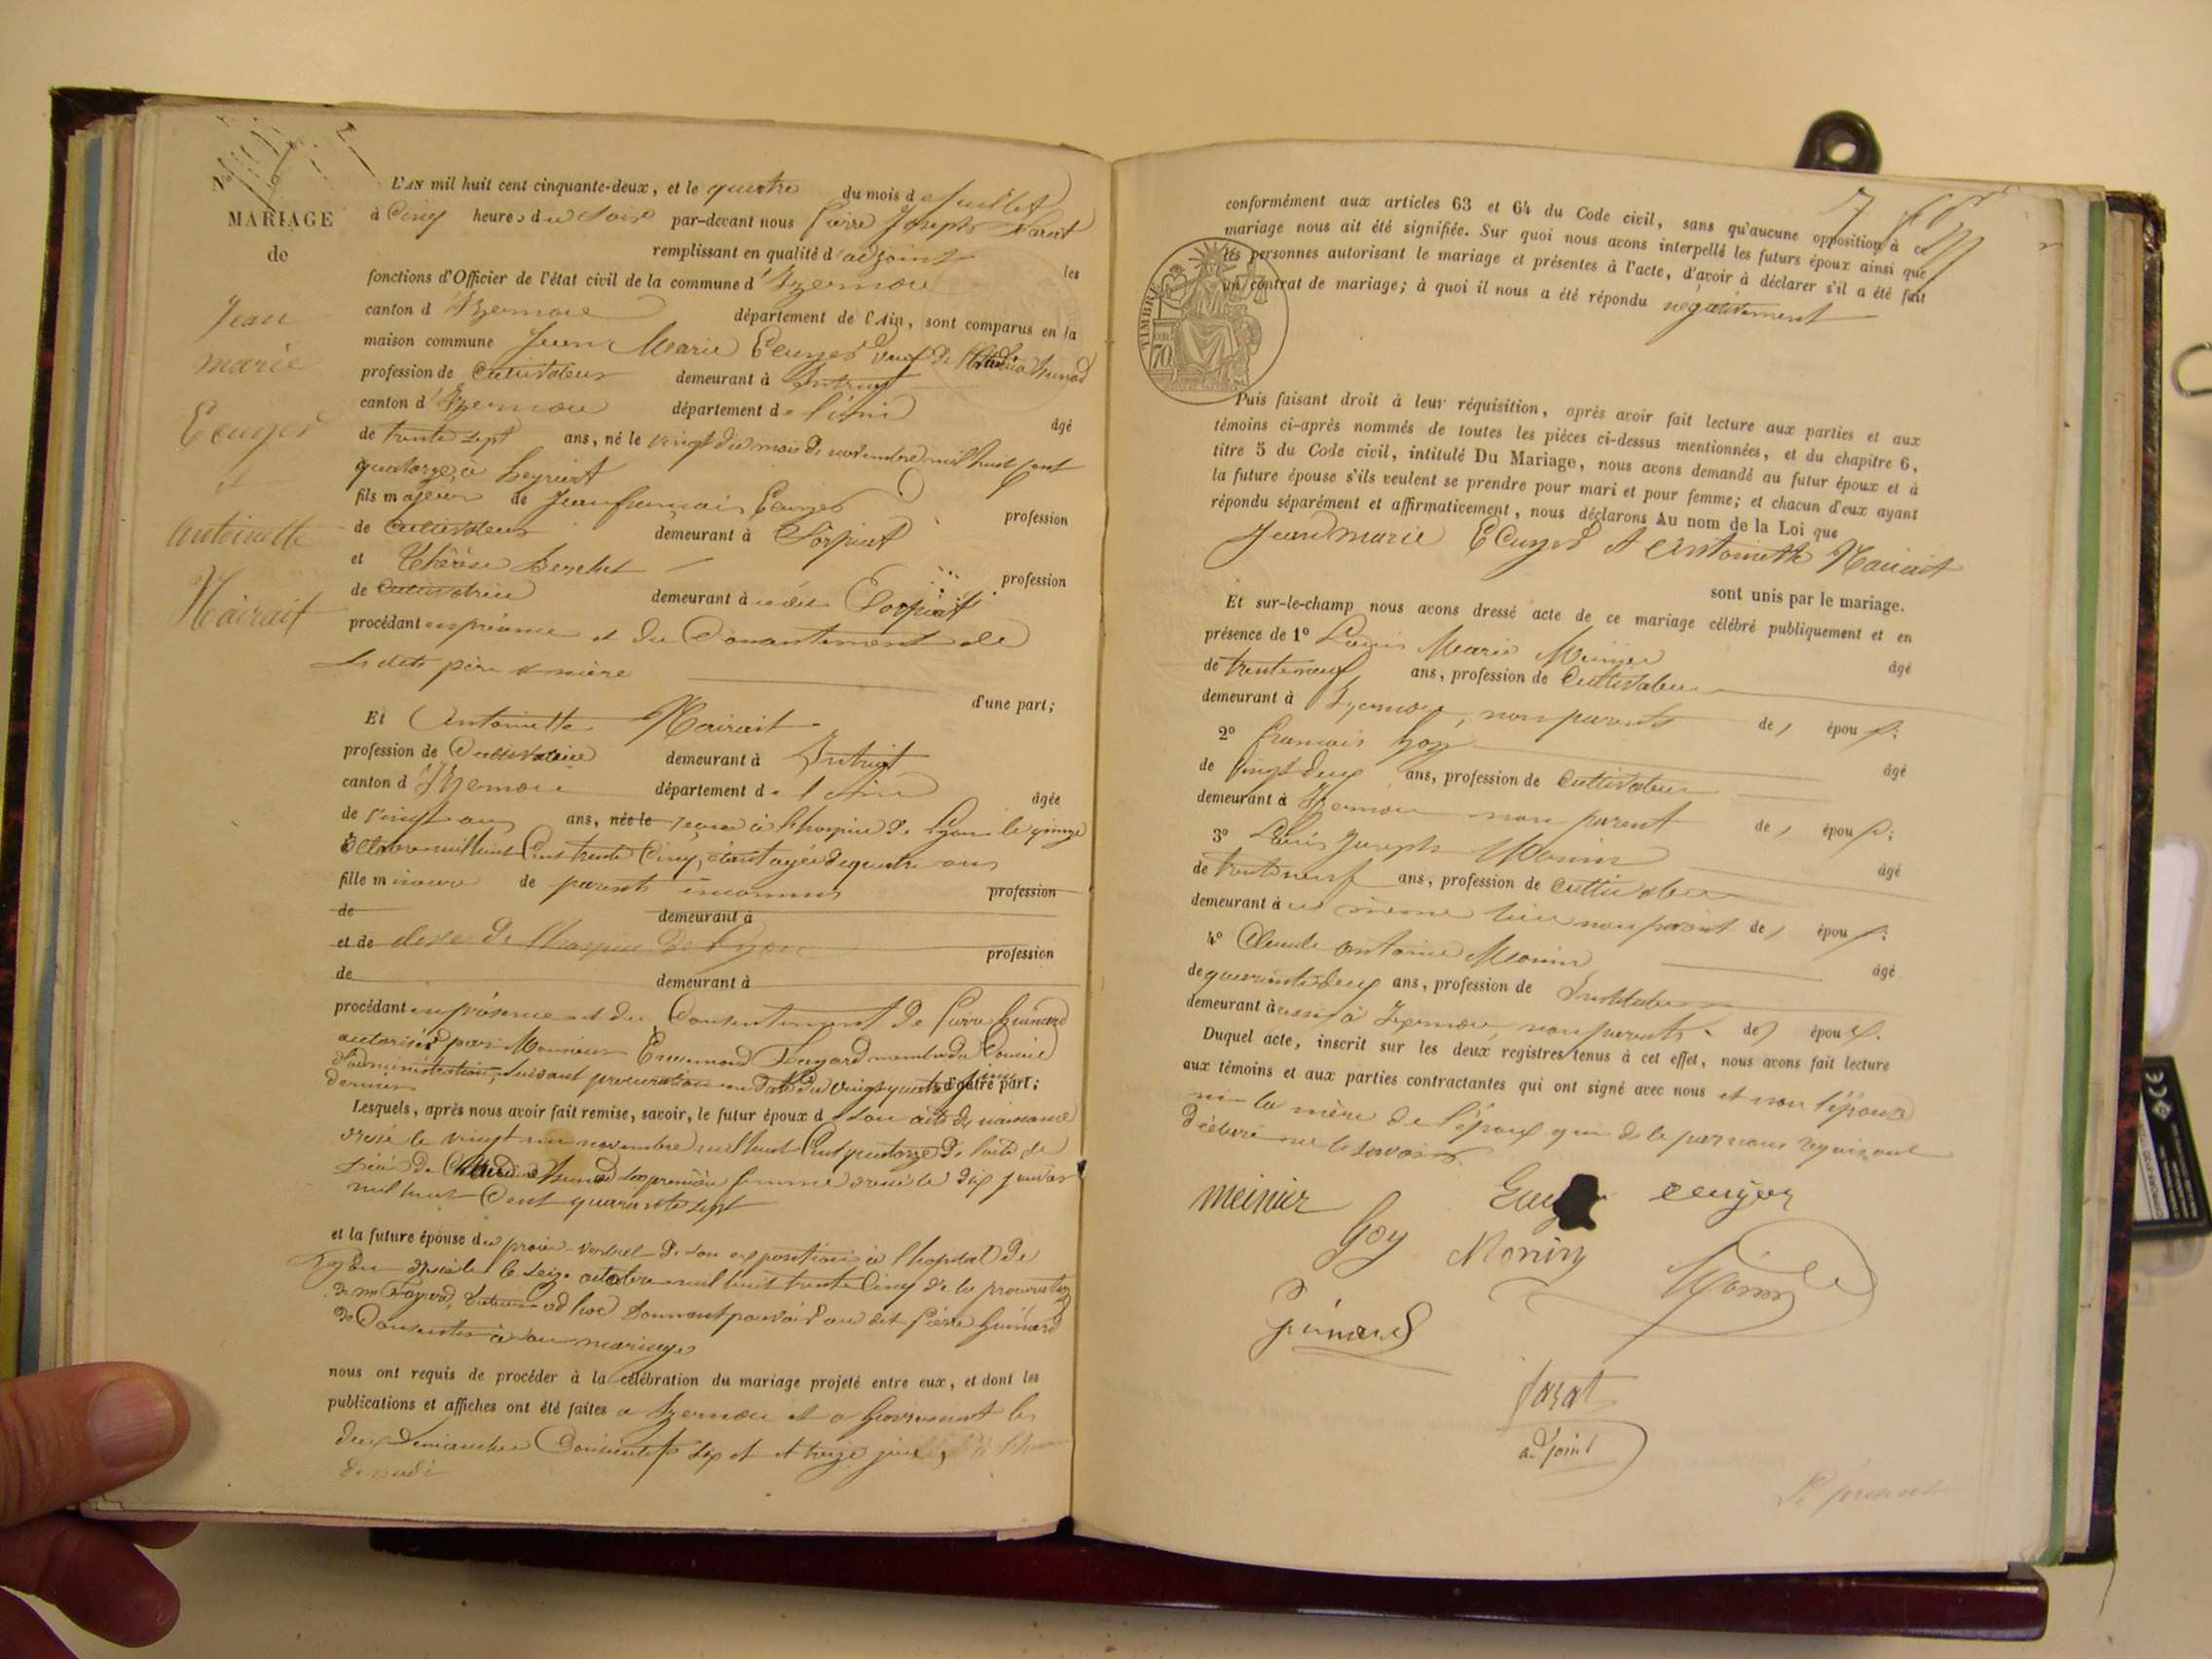 N°
MARIAGE
de
Jean
marie
Ecuyer
et
antoinette
L'AN mil huit cent cinquante-deux, et le quatre du mois de Juillet
à Cinq heures du Soir par-devant nous Pierre Joseph
remplissant en qualité d'adjoint les
fonctions d'Officier de l'état civil de la commune d'Izernore
canton d'Izernore département de l'Ain, sont comparus en la
maison commune Jean Marie Ecuyer veuf de
profession de Cultivateur demeurant à Intriat
canton d'Izernore département de l'ain âgé
de trente sept ans, né le vingt du mois de novembre mil huit cent
quatorze, à Leyriat
fils majeur de Jean françois Ecuyer profession
de Cultivateur demeurant à Sorpiat
et Thérèse Berchet profession
de Cultivatrice demeurant à Sorpiat
procédant en présence et du Consentement de
ses dits père & mère
d'une part;
Et Antoinette
profession de Cultivatrice demeurant à Intriat
canton d'Izernore département de l'ain âgée
de vingt ans ans, née le reçue à l'hospice de Lyon le quinze
octobre mil huit Cent trente Cinq, étant agée de quatre ans
fille mineure de parents inconnus profession
de demeurant à
et de de l'hospice de Lyon profession
de demeurant à
procédant en présence et du Consentement de Pierre Guinard
autorisé par Monsieur Fayard membre du Conseil
d'administration, suivant procuration en date du vingt quatre juin d'autre part;
dernier
Lesquels, après nous avoir fait remise, savoir, le futur époux de son acte de naissance
dressé le vingt un novembre mil huit Cent quatorze de l'acte de
décès de sa première femme dressé le dix janvier
mil huit Cent quarante sept
et la future épouse du procès-verbal de son exposition à l'hopital de
Lyon dressé le seize octobre mil huit trente Cinq de la procuration
de mr Fayard, tuteur ad hoc donnant pouvoir au dit Pierre Guinard
de Consentir à son mariage
nous ont requis de procéder à la célébration du mariage projeté entre eux, et dont les
publications et affiches ont été faites a Izernore et a les
deux Dimanches Consécutifs six et treize
de midi
conformément aux articles 63 et 64 du Code civil, sans qu'aucune opposition à ce
mariage nous ait été signifiée. Sur quoi nous avons interpellé les futurs époux ainsi que
les personnes autorisant le mariage et présentes à l'acte, d'avoir à déclarer s'il a été fait
un contrat de mariage; à quoi il nous a été répondu négativement
TIMBRE
70
Puis faisant droit à leur réquisition, après avoir fait lecture aux parties et aux
témoins ci-après nommés de toutes les pièces ci-dessus mentionnées, et du chapitre 6,
titre 5 du Code civil, intitulé Du Mariage, nous avons demandé au futur époux et à
la future épouse s'ils veulent se prendre pour mari et pour femme; et chacun d'eux ayant
répondu séparément et affirmativement, nous déclarons Au nom de la Loi que
Jean marie Ecuyer et Antoinette
sont unis par le mariage.
Et sur-le-champ nous avons dressé acte de ce mariage célébré publiquement et en
présence de 1° Louis Marie Meinier âgé
de trente neuf ans, profession de Cultivateur
demeurant à Izernore, non parents de, épou
2° françois Goy âgé
de vingt deux ans, profession de Cultivateur
demeurant à Izernore non parent de, épou
3° Louis Joseph Monin âgé
de trente neuf ans, profession de Cultivateur
demeurant à même lieu non parent de, épou
4° Claude Antoine Monin âgé
de quarante deux ans, profession de Instituteur
demeurant à aussi à Izernore, non parents. de, épou
Duquel acte, inscrit sur les deux registres tenus à cet effet, nous avons fait lecture
aux témoins et aux parties contractantes qui ont signé avec nous et non l'épouse
ni la mère de l'époux qui de le par nous requis ont
déclaré ne le savoir.
meinier ecuyer
Goy Monin Monin
adjoint